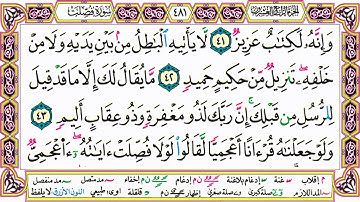 سُورَةُ فُصِّلَتْ ٤٨١
وَإِنَّهُۥ لَكِتَٰبٌ عَزِيزٌ ٤١ لَّا يَأْتِيهِ ٱلْبَٰطِلُ مِنۢ بَيْنِ يَدَيْهِ وَلَا مِنْ
خَلْفِهِۦ تَنزِيلٌ مِّنْ حَكِيمٍ حَمِيدٍ ٤٢ مَّا يُقَالُ لَكَ إِلَّا مَا قَدْ قِيلَ
لِلرُّسُلِ مِن قَبْلِكَ إِنَّ رَبَّكَ لَذُو مَغْفِرَةٍ وَذُو عِقَابٍ أَلِيمٍ ٤٣
وَلَوْ جَعَلْنَٰهُ قُرْءَانًا أَعْجَمِيًّا لَّقَالُوا۟ لَوْلَا فُصِّلَتْ ءَايَٰتُهُۥٓ ءَا۬عْجَمِىٌّ